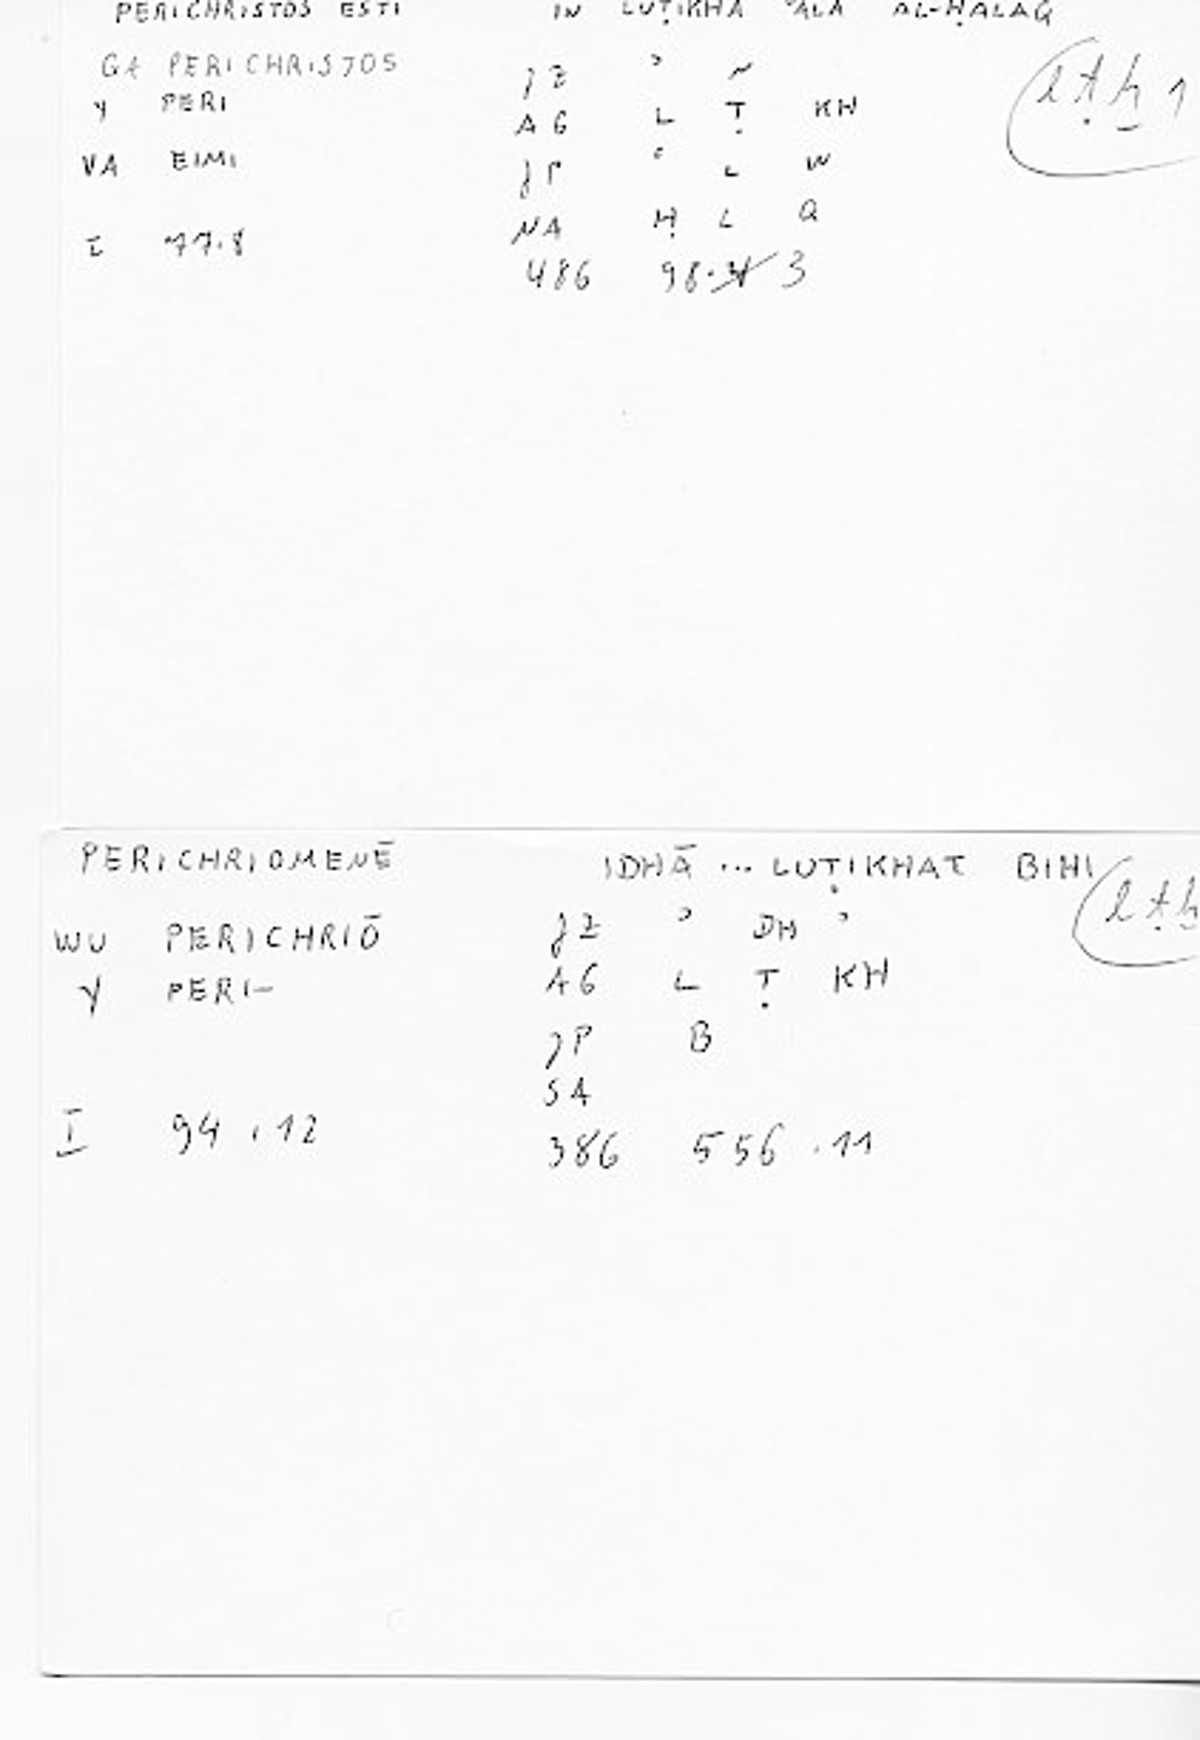 PERICHRISTOS ESTI IN LUṬIKHA ʿALA AL-ḤALAQ
GA PERICHRISTOS JZ ʾ N
Y PERI AG L Ṭ KH lṭḫ 1
VA EIMI JP ʿ L W
NA Ḥ L Q
I 77.8 486 98. 3
PERICHRIOMENĒ IDHĀ ... LUṬIKHAT BIHI
WU PERICHRIŌ JZ ʾ DH ʾ lṭḫ
Y PERI- AG L Ṭ KH
JP B
SA
I 94.12 386 556.11